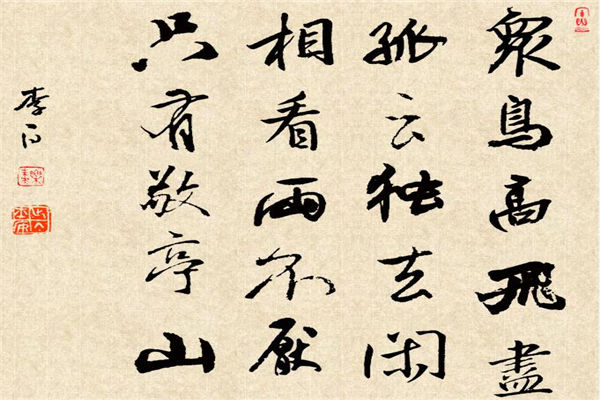 衆鳥高飛盡
孤云独去閑
相看兩不厭
只有敬亭山
李白